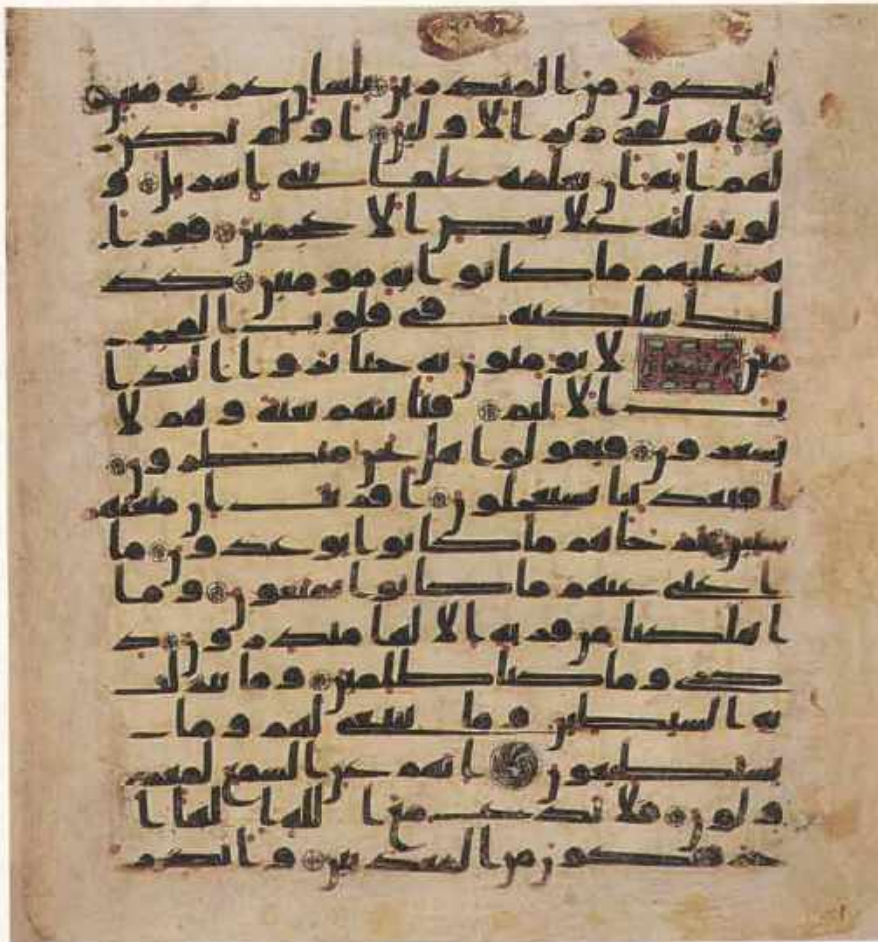 لتكون من المنذرين بلسان عربي مبين
وانه لفي زبر الاولين اولم يكن
لهم اية ان يعلمه علما بني اسريل و
لو نزلنه على بعض الاعجمين فقرا
ه عليهم ما كانوا به مومنين كذ
لك سلكنه في قلوب المجر
مين لا يومنون به حتى يروا العذا
ب الاليم فياتيهم بغتة وهم لا
يشعرون فيقولوا هل نحن منظرون
افبعذابنا يستعجلون افريت ان متعنهم
سنين ثم جاهم ما كانوا يوعدون ما
اغنى عنهم ما كانوا يمتعون وما
اهلكنا من قرية الا لها منذرون ذ
كرى وما كنا ظلمين وما تنزلت
به الشيطين وما ينبغي لهم وما
يستطيعون انهم عن السمع لمعز
ولون فلا تدع مع الله الها ا
خر فتكون من المعذبين وانذر